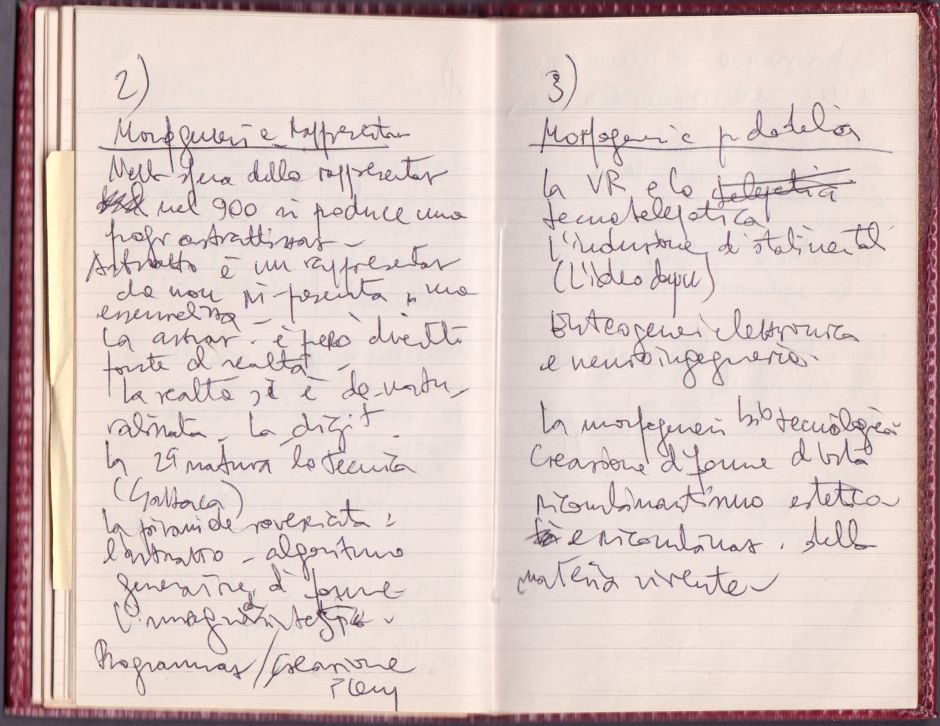 2)
Morfogenesi e rappresentaz
Nella sfera della rappresentaz
nel 900 si produce una
progr astrattizzaz -
Astratto è un rappresentar
che non ri-presenta, ma
essenzializza -
La astraz. è però diventata
fonte di realtà -
La realtà si è de-natu-
ralizzata - La digit
la 2ª natura la tecnica
(Gattaca)
la piramide rovesciata:
l'astratto - algoritmo
generatore di forme
L'immagine
Programmaz / Creazione
3)
Morfogenesi e psichedelia
La VR e la telepatica
tecnotelepatica
L'induzione di stati mentali
(L'ideodrug)
Enteogenesi elettronica
e neuroingegneria.
La morfogenesi biotecnologica
Creazione di forme di vita
ricombinantismo estetico
e ricombinaz. della
materia vivente